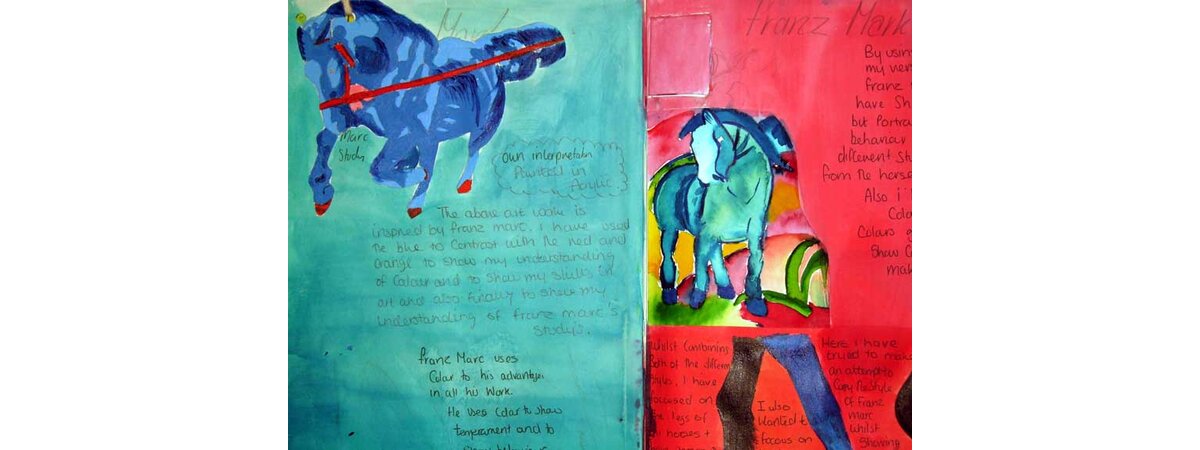 Mark
Marc
Study
own interpretation
Painted in
Acrylic
The above art work is
inspired by franz marc. I have used
the blue to contrast with the red and
orange to show my understanding
of Colour and to show my skills in
art and also finally to show my
understanding of franz marc's
Study's.
franz Marc uses
Color to his advantage
in all his work.
He uses Color to show
temperament and to
Franz Mark
By usin
my ver
franz
have Sh
but Portra
behaviour
different St
from the horse
Also i
Colo
Colours g
Show C
mak
Whilst Combining
both of the differen
styles, I have
focussed on
the legs of
all horses +
I also
Wanted to
focus on
Here I have
tried to make
an attempt to
Copy the Style
of Franz
marc
whilst
Showing